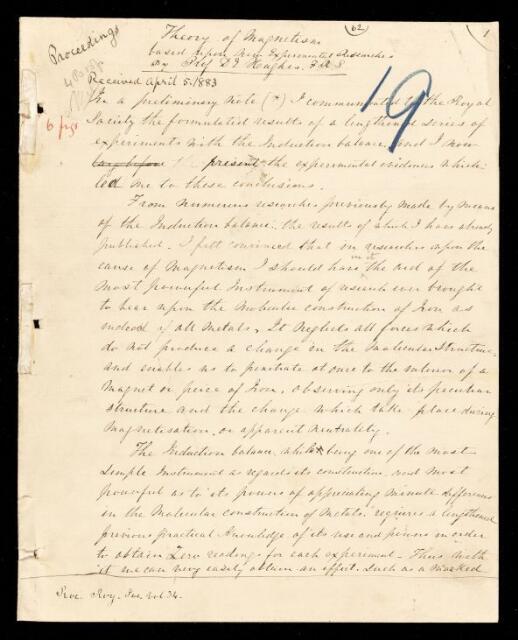 62
1
Proceedings
Theory of Magnetism
based upon new Experimental Researches
By Prof D E Hughes. F.R.S
Received April 5. 1883
19
6 figs
In a preliminary note (*) I communicated to the Royal
Society the formulated results of a lengthened series of
experiments with the Induction balance, and I now
lay before present the experimental evidences which
led me to these conclusions.
From numerous researches previously made by means
of the Induction balance, the results of which I have already
published, I felt convinced that in researches upon the
cause of Magnetism I should have in it the aid of the
most powerful Instrument of research ever brought
to bear upon the Molecular construction of Iron as
indeed of all Metals. It neglects all forces which
do not produce a change in the Molecular Structure,
and enables us to penetrate at once to the interior of a
Magnet or piece of Iron, observing only its peculiar
structure and the change which take place during
Magnetisation, or apparent neutrality.
The Induction balance, whilst being one of the most
simple Instrument as regards its construction, and most
powerful as to its powers of appreciating minute difference
in the Molecular construction of Metals, requires a lengthened
previous practical knowledge of its use and powers in order
to obtain Zero readings for each experiment - Thus with
it we can very easily obtain an effect. Such as a marked
Proc. Roy. Soc. vol. 34.